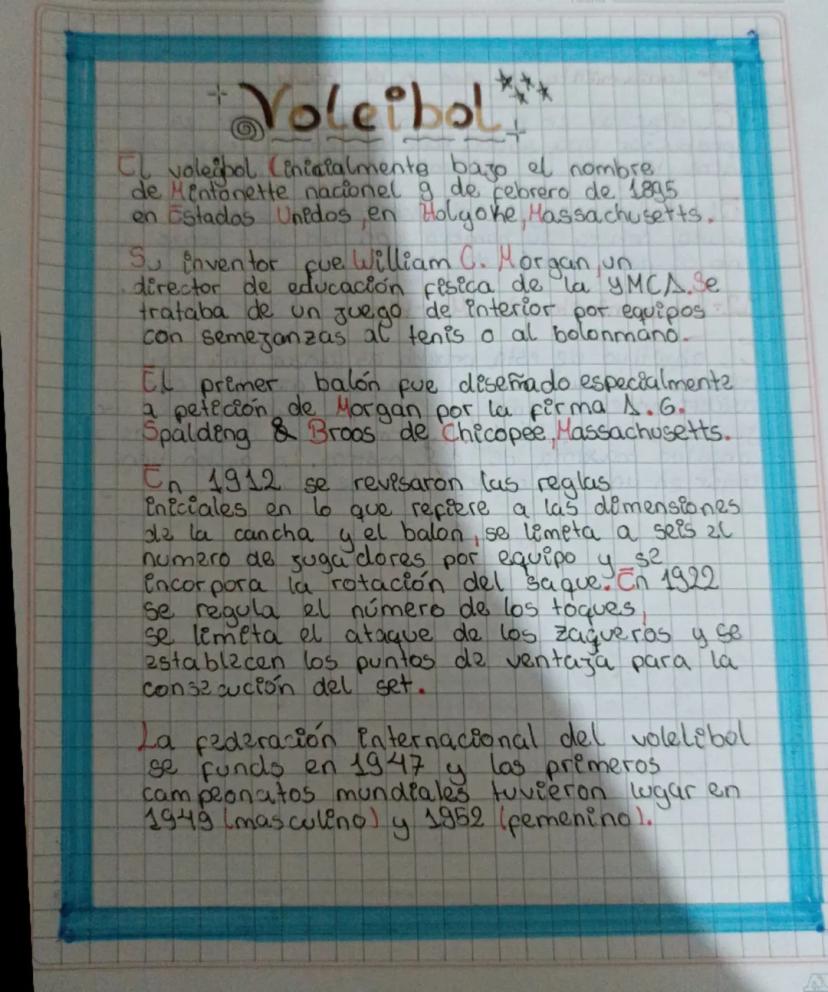 Voleibol
El voleibol (inicialmente bajo el nombre
de Mintonette nacionel 9 de febrero de 1895
en Estados Unidos, en Holyoke, Massachusetts.
Su inventor fue William C. Morgan, un
director de educación física de la YMCA. Se
trataba de un juego de interior por equipos
con semejanzas al tenis o al bolonmano.
El primer balón fue diseñado especialmente
a petición de Morgan por la firma A. G.
Spalding & Broos de Chicopee, Massachusetts.
En 1912 se revisaron las reglas
iniciales en lo que refiere a las dimensiones
de la cancha y el balon, se limita a seis el
numero de jugadores por equipo y se
incorpora la rotación del saque. En 1922
se regula el número de los toques,
se limita el ataque de los zagueros y se
establecen los puntos de ventaja para la
consecución del set.
La federación internacional del volelibol
se fundo en 1947 y los primeros
campeonatos mundiales tuvieron lugar en
1949 (masculino) y 1952 (femenino).